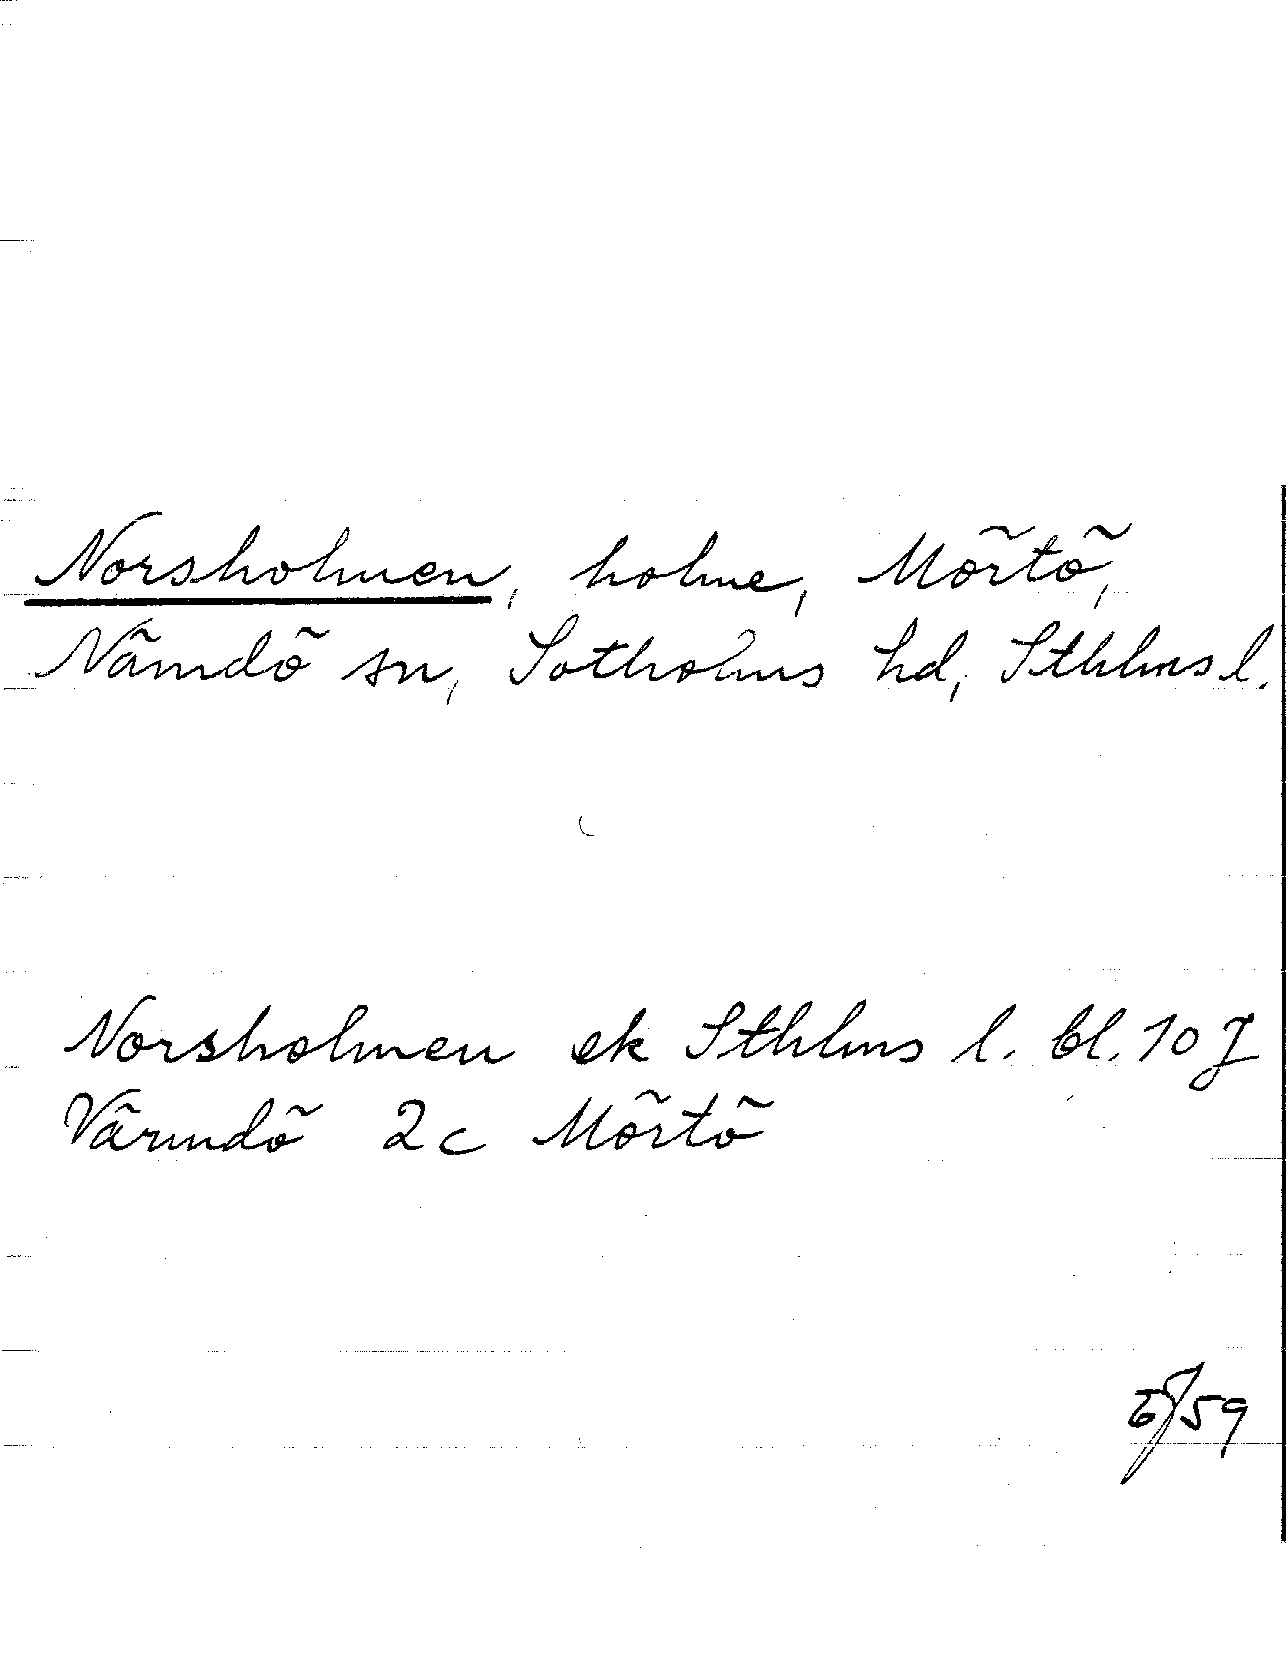 Norsholmen, holme, Mörtö,
Nämdö sn, Sotholms hd, Sthlms l.
Norsholmen ek Sthlms l. bl. 10 J
Värmdö 2c Mörtö
59